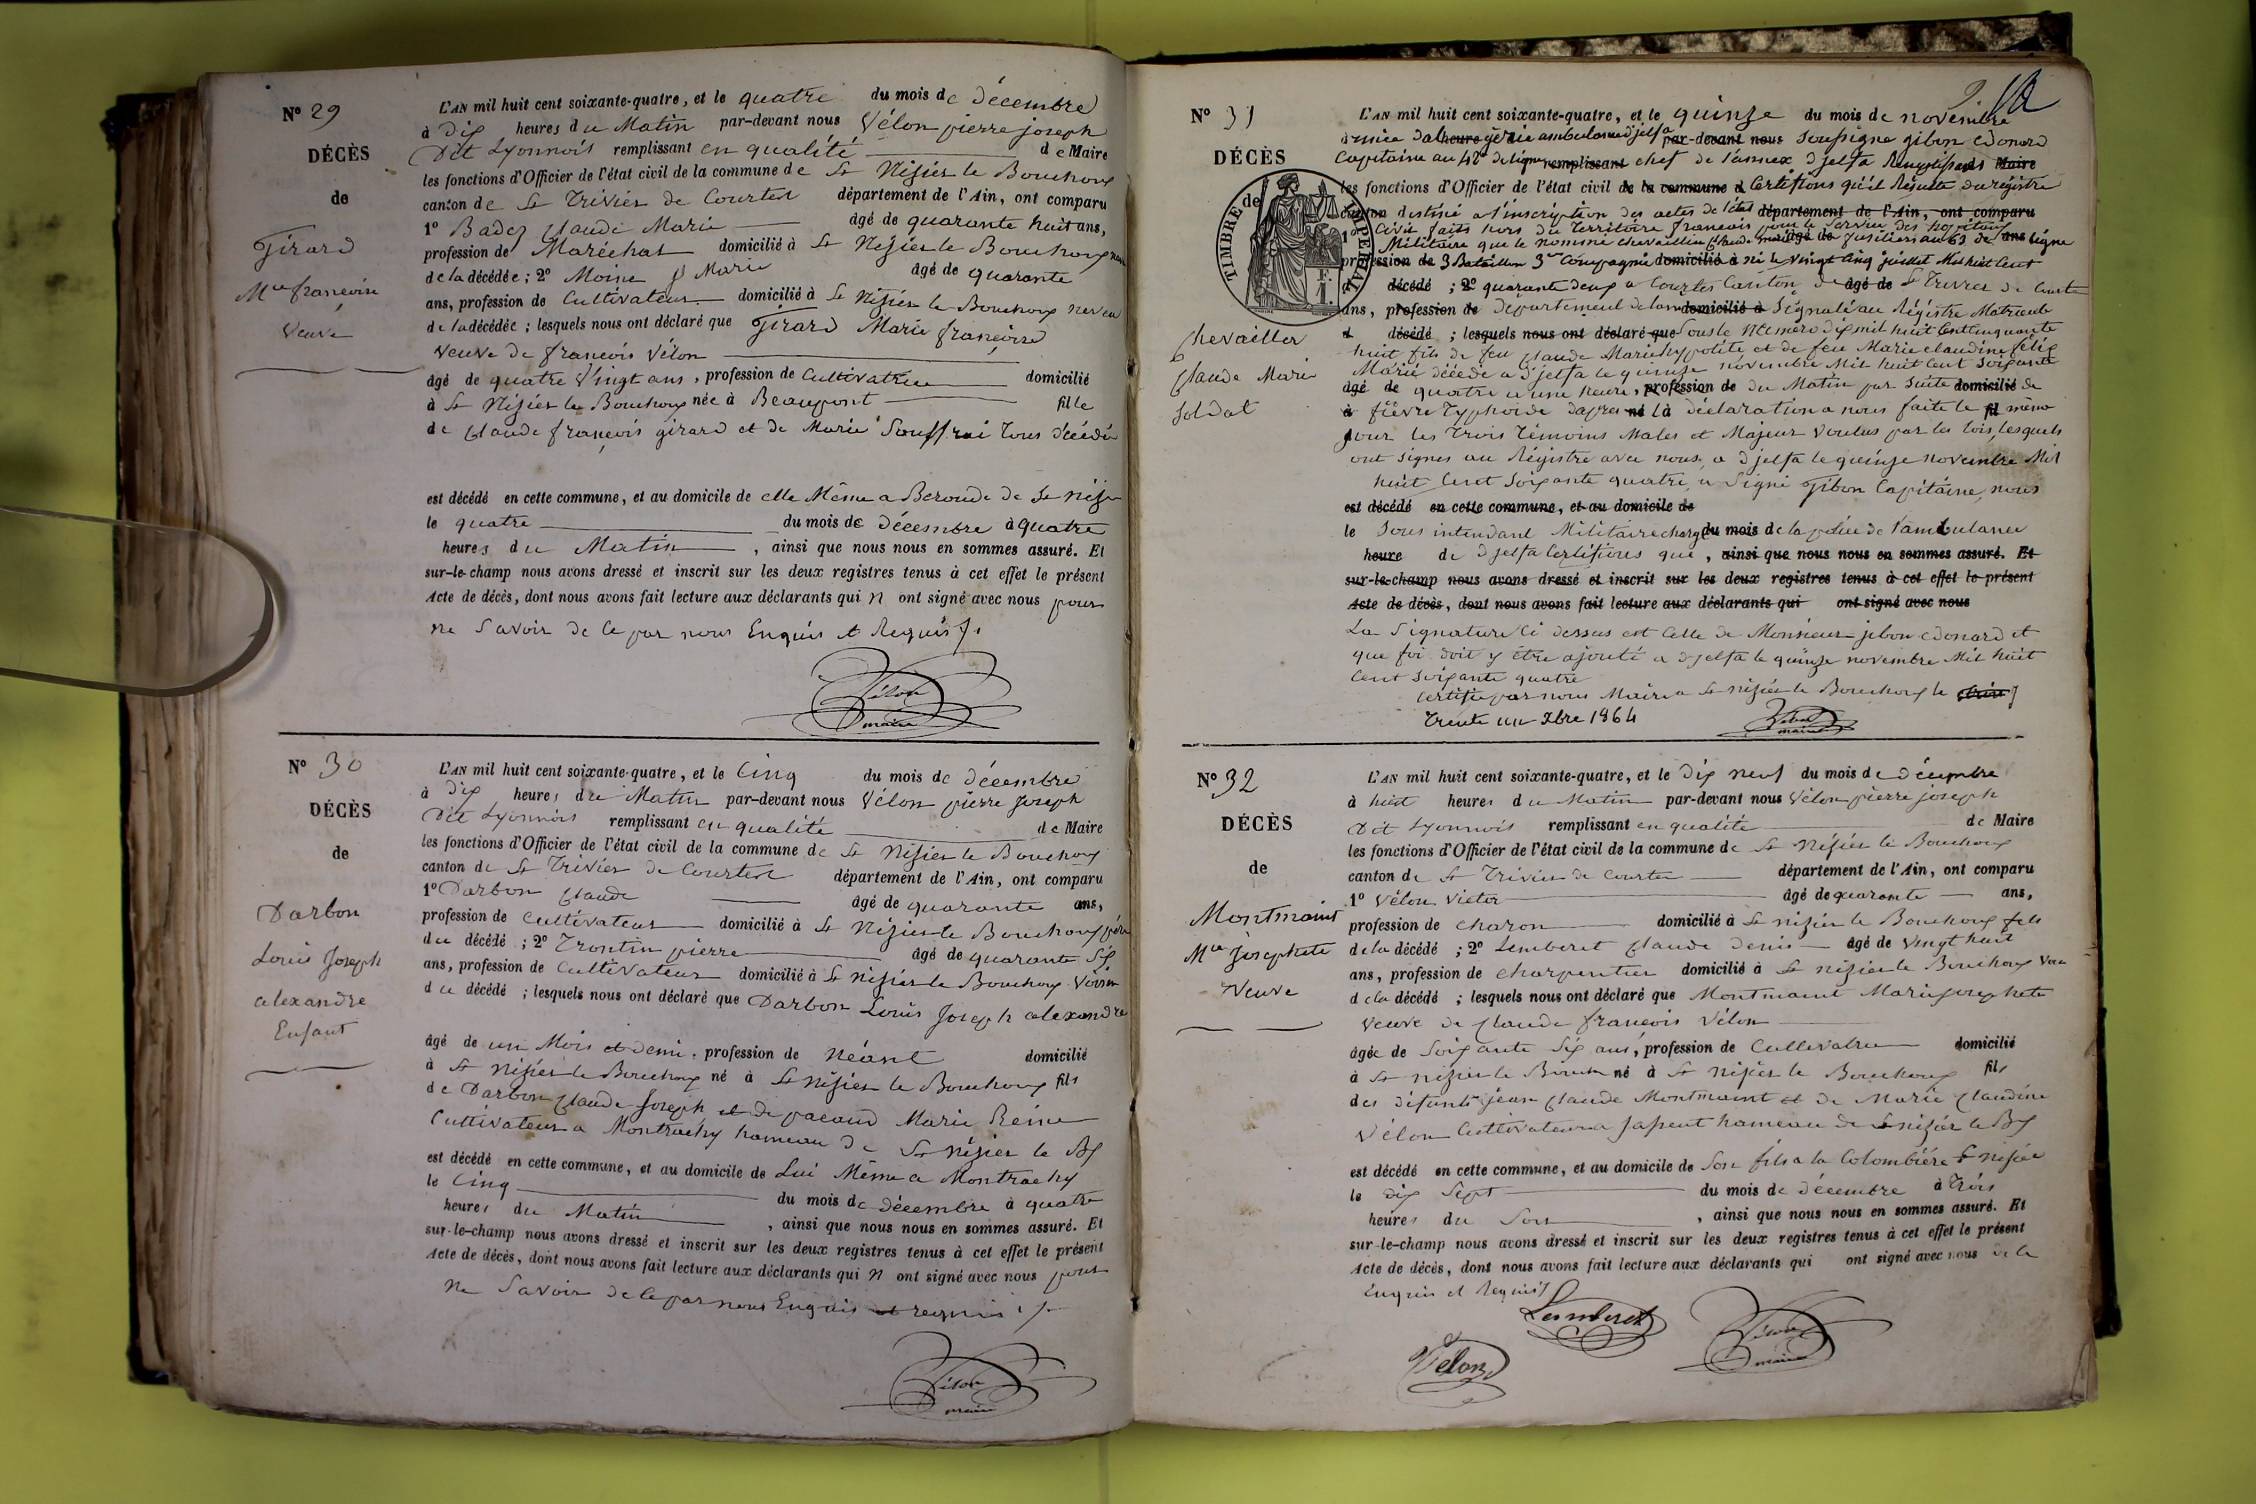 Nº 29
DÉCÈS
de
Girard
Mie françoise
Veuve
L'AN mil huit cent soixante-quatre, et le quatre du mois de décembre
à Dix heures du Matin par-devant nous Vélon pierre joseph
Dit Lyonnois remplissant en qualité de Maire
les fonctions d'Officier de l'état civil de la commune de St Nizier le Bouchoux
canton de St Trivier de Courtes département de l'Ain, ont comparu
1º Badez Claude Marie âgé de quarante huit ans,
profession de Maréchal domicilié à St Nizier le Bouchoux
de la décédée; 2º Moine J Marie âgé de quarante
ans, profession de Cultivateur domicilié à St Nizier le Bouchoux neveu
de la décédée; lesquels nous ont déclaré que Girard Marie françoise
veuve de françois Vélon
âgé de quatre Vingt ans, profession de Cultivatrice domicilié
à St Nizier le Bouchoux née à Beaupont fille
de Claude françois girard et de Marie Souffrai tous décédés
est décédé en cette commune, et au domicile de elle Même a Beroude de St Nizier
le quatre du mois de décembre à quatre
heures du Matin, ainsi que nous nous en sommes assuré. Et
sur-le-champ nous avons dressé et inscrit sur les deux registres tenus à cet effet le présent
Acte de décès, dont nous avons fait lecture aux déclarants qui n ont signé avec nous pour
ne Savoir de ce par nous Enquis et Requis
Vélon
maire
Nº 30
DÉCÈS
de
Darbon
Louis Joseph
alexandre
Enfant
L'AN mil huit cent soixante-quatre, et le Cinq du mois de décembre
à dix heures du Matin par-devant nous Vélon pierre Joseph
Dit Lyonnois remplissant en qualité de Maire
les fonctions d'Officier de l'état civil de la commune de St Nizier le Bouchoux
canton de St Trivier de Courtes département de l'Ain, ont comparu
1º Darbon Claude âgé de quarante ans,
profession de Cultivateur domicilié à St Nizier le Bouchoux père
du décédé; 2º Trontin pierre âgé de quarante Six
ans, profession de Cultivateur domicilié à St Nizier le Bouchoux Voisin
du décédé; lesquels nous ont déclaré que Darbon Louis Joseph alexandre
âgé de un Mois et demi, profession de Néant domicilié
à St Nizier le Bouchoux né à St Nizier le Bouchoux fils
de Darbon Claude Joseph et de pacaud Marie Reine
Cultivateur a Montrachy hameau de St Nizier le Bx
est décédé en cette commune, et au domicile de Lui Même a Montrachy
le Cinq du mois de décembre à quatre
heures du Matin, ainsi que nous nous en sommes assuré. Et
sur-le-champ nous avons dressé et inscrit sur les deux registres tenus à cet effet le présent
Acte de décès, dont nous avons fait lecture aux déclarants qui n ont signé avec nous pour
ne Savoir de ce par nous Enquis et requis
Vélon
maire
Nº 31
DÉCÈS
de
TIMBRE IMPERIAL
Chevailler
Claude Marie
Soldat
L'AN mil huit cent soixante-quatre, et le quinze du mois de novembre
par-devant nous Soussigne gibon Edouard
Capitaine au 42e de ligne remplissant chef de l'annex djelfa Remplissant Maire
les fonctions d'Officier de l'état civil de la commune d Certifions qu'il Résulte du régistre
canton destiné a l'inscription des actes de l'état département de l'Ain, ont comparu
1º Civil faits hors du territoire francais pour le Service des hopitaux
Militaire que le nommé Chevaillier Claude Marie âgé de fusilier au 63 de ans ligne
profession de 3 Bataillon 3me Compagnie domicilié à né le Vingt Cinq juillet Mil huit Cent
décédé; 2º quarante deux a Courtes Canton de âgé de St Trivier de Courtes
ans, profession de département de lain domicilié à Signalé au Régistre Matricule
d décédé; lesquels nous ont déclaré que Sous le Numéro dix mil huit Cent cinquante
huit fils de feu Claude Marie hypolite et de feu Marie Claudine félix
Marié décédé a djelfa le quinze novembre Mil huit Cent Soixante
âgé de quatre a une heure, profession de du Matin par Suite domicilié de
à fièvre Typhoide dapres né la déclaration a nous faite le fil même
jour les trois témoins Males et Majeur Voulus par les lois, lesquels
ont signes au Régistre avec nous, a djelfa le quinze novembre Mil
huit Cent Soixante quatre, a Signé gibon Capitaine, nous
est décédé en cette commune, et au domicile de
le Sous intendant Militaire chargé du mois de la police de l'ambulance
heure de djelfa Certifions que, ainsi que nous nous en sommes assuré. Et
sur-le-champ nous avons dressé et inscrit sur les deux registres tenus à cet effet le présent
Acte de décès, dont nous avons fait lecture aux déclarants qui ont signé avec nous
La Signature Ci dessus est Celle de Monsieur jibon edouard et
que foi doit y être ajouté a djelfa le quinze novembre Mil huit
Cent Soixante quatre
Certifié par nous Maire a St nizier le Bouchoux le
Trente un Xbre 1864
Vélon
maire
Nº 32
DÉCÈS
de
Montmaint
Mie Josephete
Veuve
L'AN mil huit cent soixante-quatre, et le Dix neuf du mois de décembre
à huit heures du Matin par-devant nous Vélon pierre joseph
Dit Lyonnois remplissant en qualité de Maire
les fonctions d'Officier de l'état civil de la commune de St Nizier le Bouchoux
canton de St Trivier de Courtes département de l'Ain, ont comparu
1º Vélon Victor âgé de quarante ans,
profession de charon domicilié à St nizier le Bouchoux fils
de la décédé; 2º Lemberet Claude Denis âgé de Vingt huit
ans, profession de charpentier domicilié à St nizier le Bouchoux
de la décédé; lesquels nous ont déclaré que Montmaint Marie josephete
veuve de Claude françois Vélon
âgée de Soixante Six ans, profession de Cultivatrice domicilié
à St nizier le Bouch né à St Nizier le Bouchoux fils
des défunts jean Claude Montmaint et de Marie Claudine
Vélon Cultivateur a japeut hameau de St nizier le Bx
est décédé en cette commune, et au domicile de Son fils a la Colombiére St nizier
le dix Sept du mois de décembre à Trois
heures du Soir, ainsi que nous nous en sommes assuré. Et
sur-le-champ nous avons dressé et inscrit sur les deux registres tenus à cet effet le présent
Acte de décès, dont nous avons fait lecture aux déclarants qui ont signé avec nous de ce
Enquis et Requis
Lemberet
Vélon
maire
Vélon